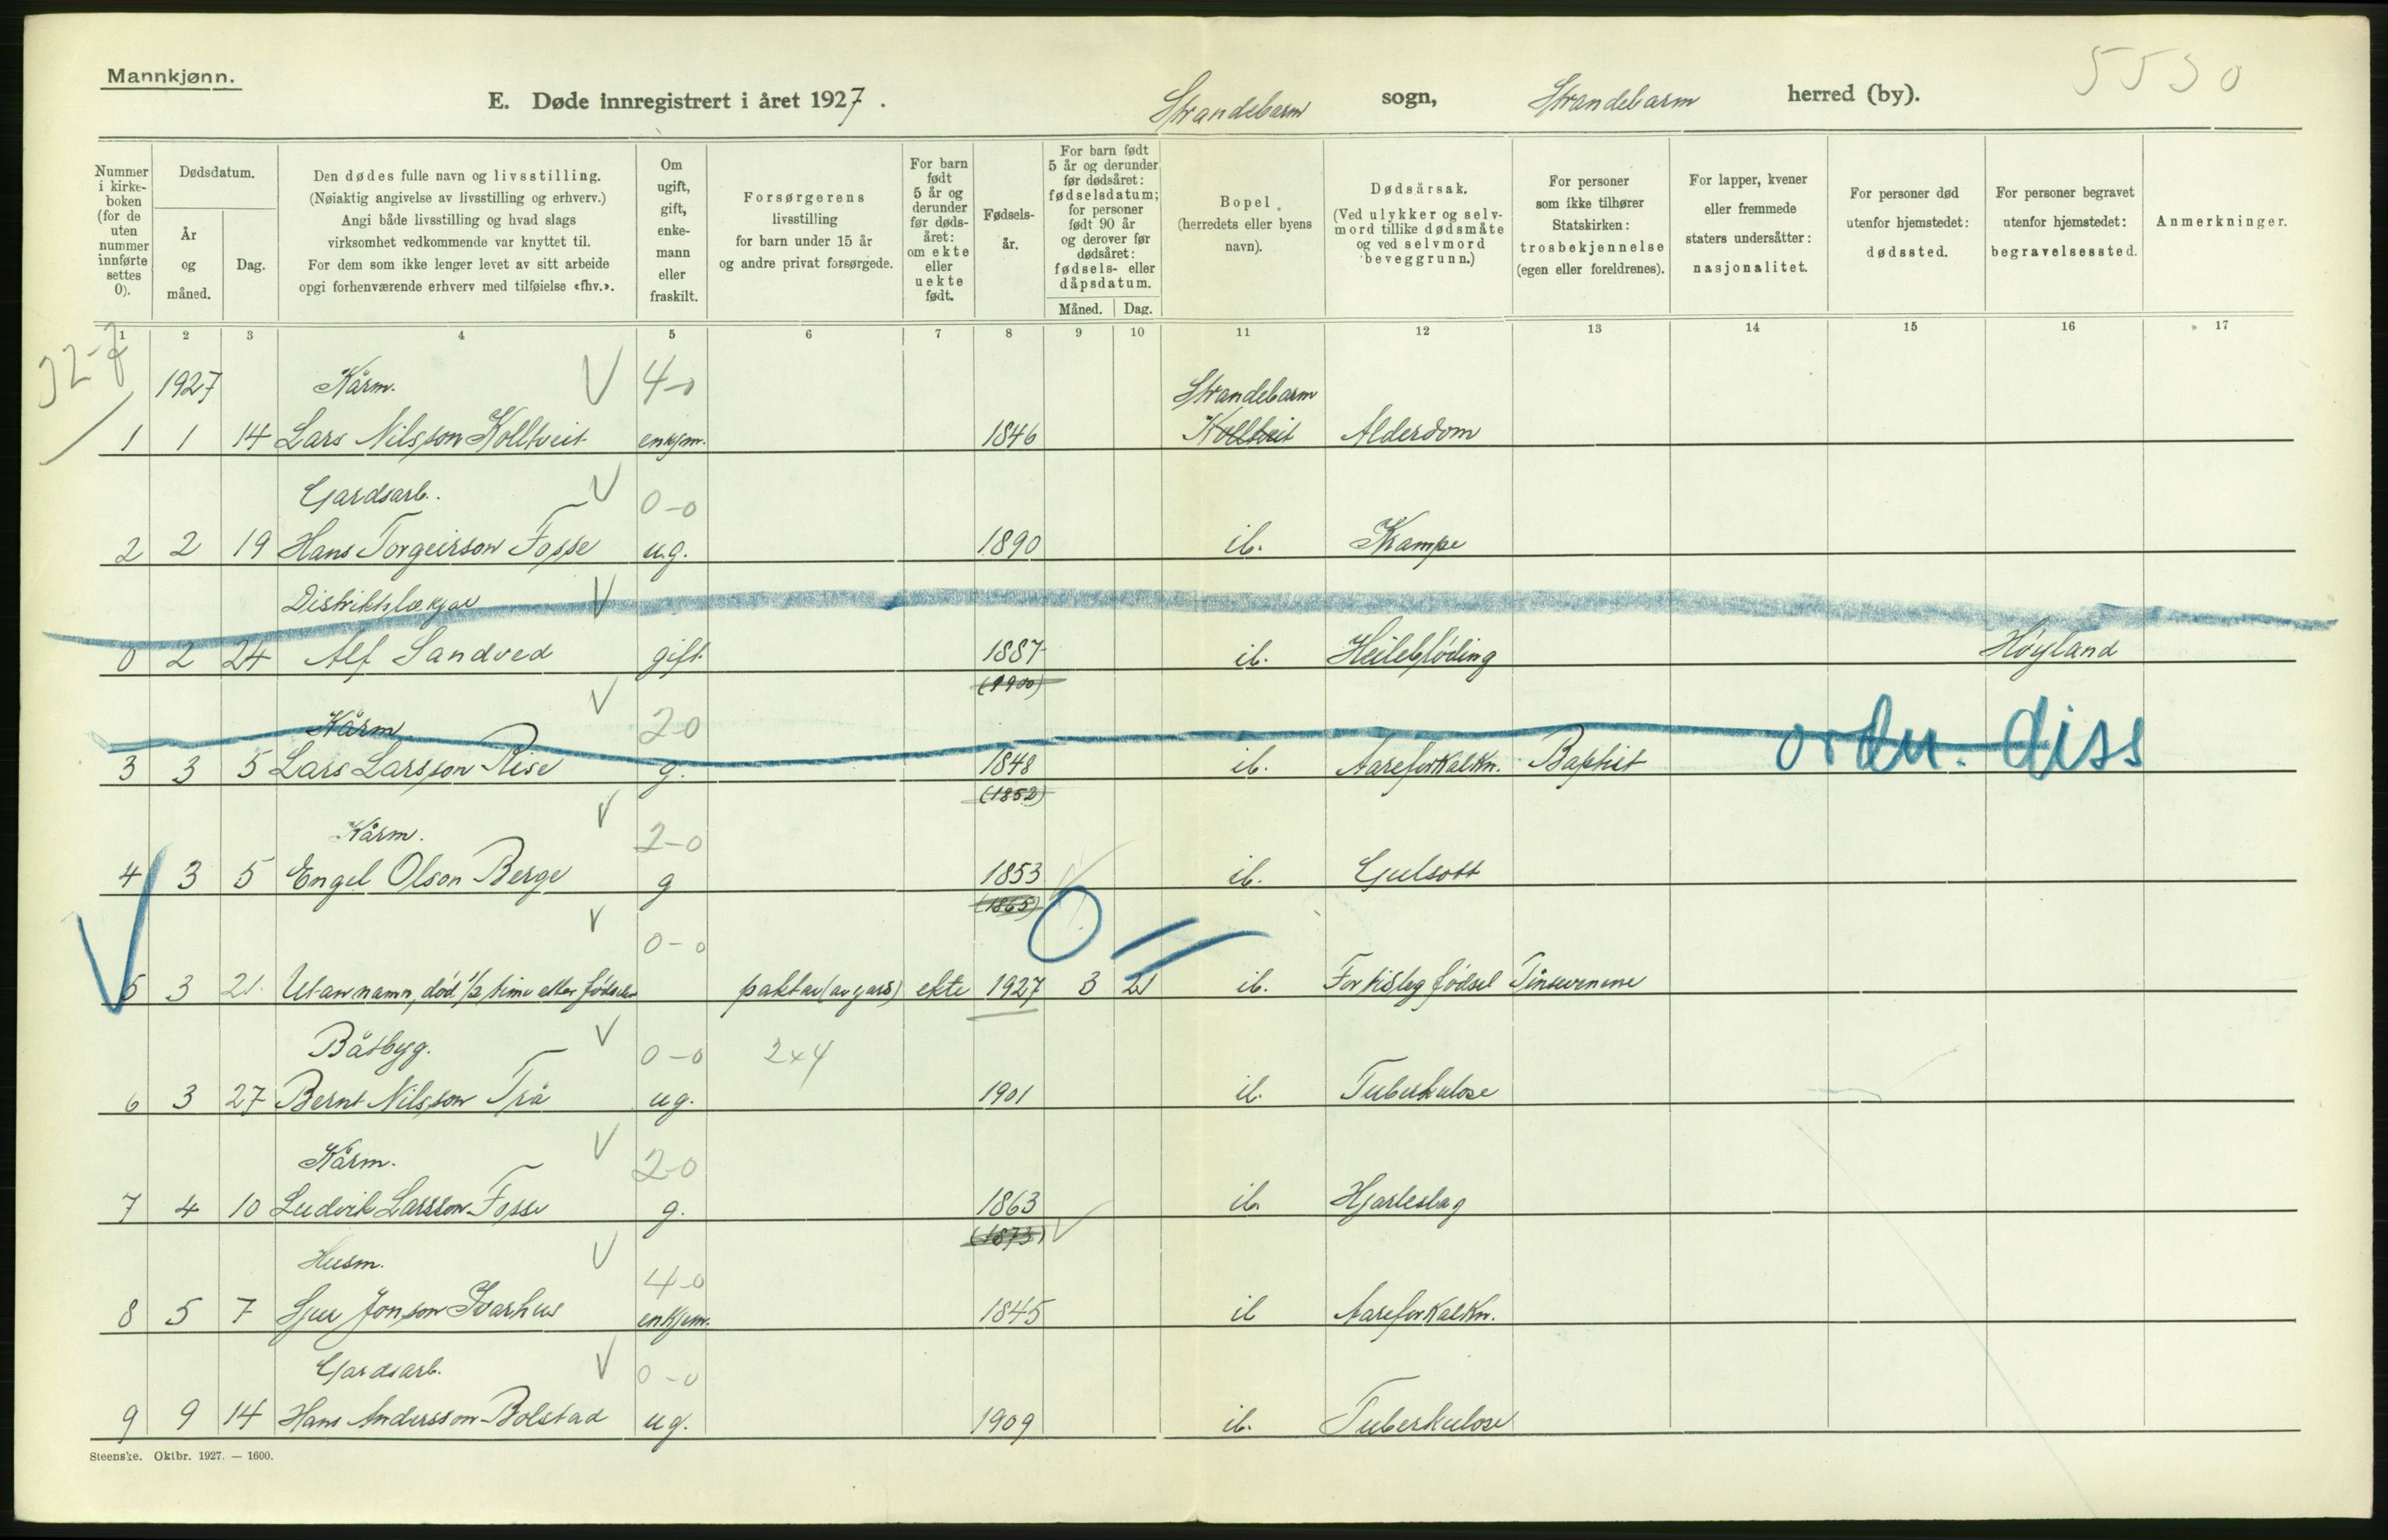 Mannkjønn.
E. Døde innregistrert i året 1927. Strandebarm sogn, Strandebarm herred (by). 5530
Nummer i kirkeboken (for de uten nummer innførte settes 0).
Dødsdatum.
År og måned.
Dag.
Den dødes fulle navn og livsstilling. (Nøiaktig angivelse av livsstilling og erhverv.) Angi både livsstilling og hvad slags virksomhet vedkommende var knyttet til. For dem som ikke lenger levet av sitt arbeide opgi forhenværende erhverv med tilføielse «fhv.».
Om ugift, gift, enkemann eller fraskilt.
Forsørgerens livsstilling for barn under 15 år og andre privat forsørgede.
For barn født 5 år og derunder før dødsåret: om ekte eller uekte født.
Fødselsår.
For barn født 5 år og derunder før dødsåret: fødselsdatum; for personer født 90 år og derover før dødsåret: fødsels- eller dåpsdatum.
Måned. Dag.
Bopel. (herredets eller byens navn).
Dødsårsak. (Ved ulykker og selvmord tillike dødsmåte og ved selvmord beveggrunn.)
For personer som ikke tilhører Statskirken: trosbekjennelse (egen eller foreldrenes).
For lapper, kvener eller fremmede staters undersåtter: nasjonalitet.
For personer død utenfor hjemstedet: dødssted.
For personer begravet utenfor hjemstedet: begravelsessted.
Anmerkninger.
1 2 3 4 5 6 7 8 9 10 11 12 13 14 15 16 17
32-7
1927 Kårm. V 4-0 Strandebarm
1 1 14 Lars Nilsson Kolltveit enkjm. 1846 Kolltveit Alderdom
Gardsarb. V 0-0
2 2 19 Hans Torgeirson Fosse u.g. 1890 ib. Krampe
Distriktslækjar V
0 2 24 Alf Sandved gift 1887 ib. Heilebløding Høyland
(1900)
Kårm V 2-0
3 3 5 Lars Larsson Rise g. 1848 ib. Aareforkalkn. Baptist ordn. diss
(1852)
Kårm. V 2-0
4 3 5 Engel Olson Berge g 1853 ib. Gulsott
(1865)
V 0-0
5 3 21. Utan namn, død 1/2 time etter fødselen ekte 1927 3 21 ib. For tidleg fødsel
Båtbyg. V 0-0 2x4
6 3 27 Bernt Nilsson Trå ug. 1901 ib. Tuberkulose
Kårm. V 2-0
7 4 10 Ludvik Larsson Fosse g. 1863 ib. Hjarteslag
(1873) V
Husm. V 4-0
8 5 7 Sjur Jonson Kvarhus enkjem. 1845 ib Aareforkalkn.
Gardsarb. V 0-0
9 9 14 Hans Andersson Bolstad ug. 1909 ib. Tuberkulose
Steenske. Oktbr. 1927. — 1600.